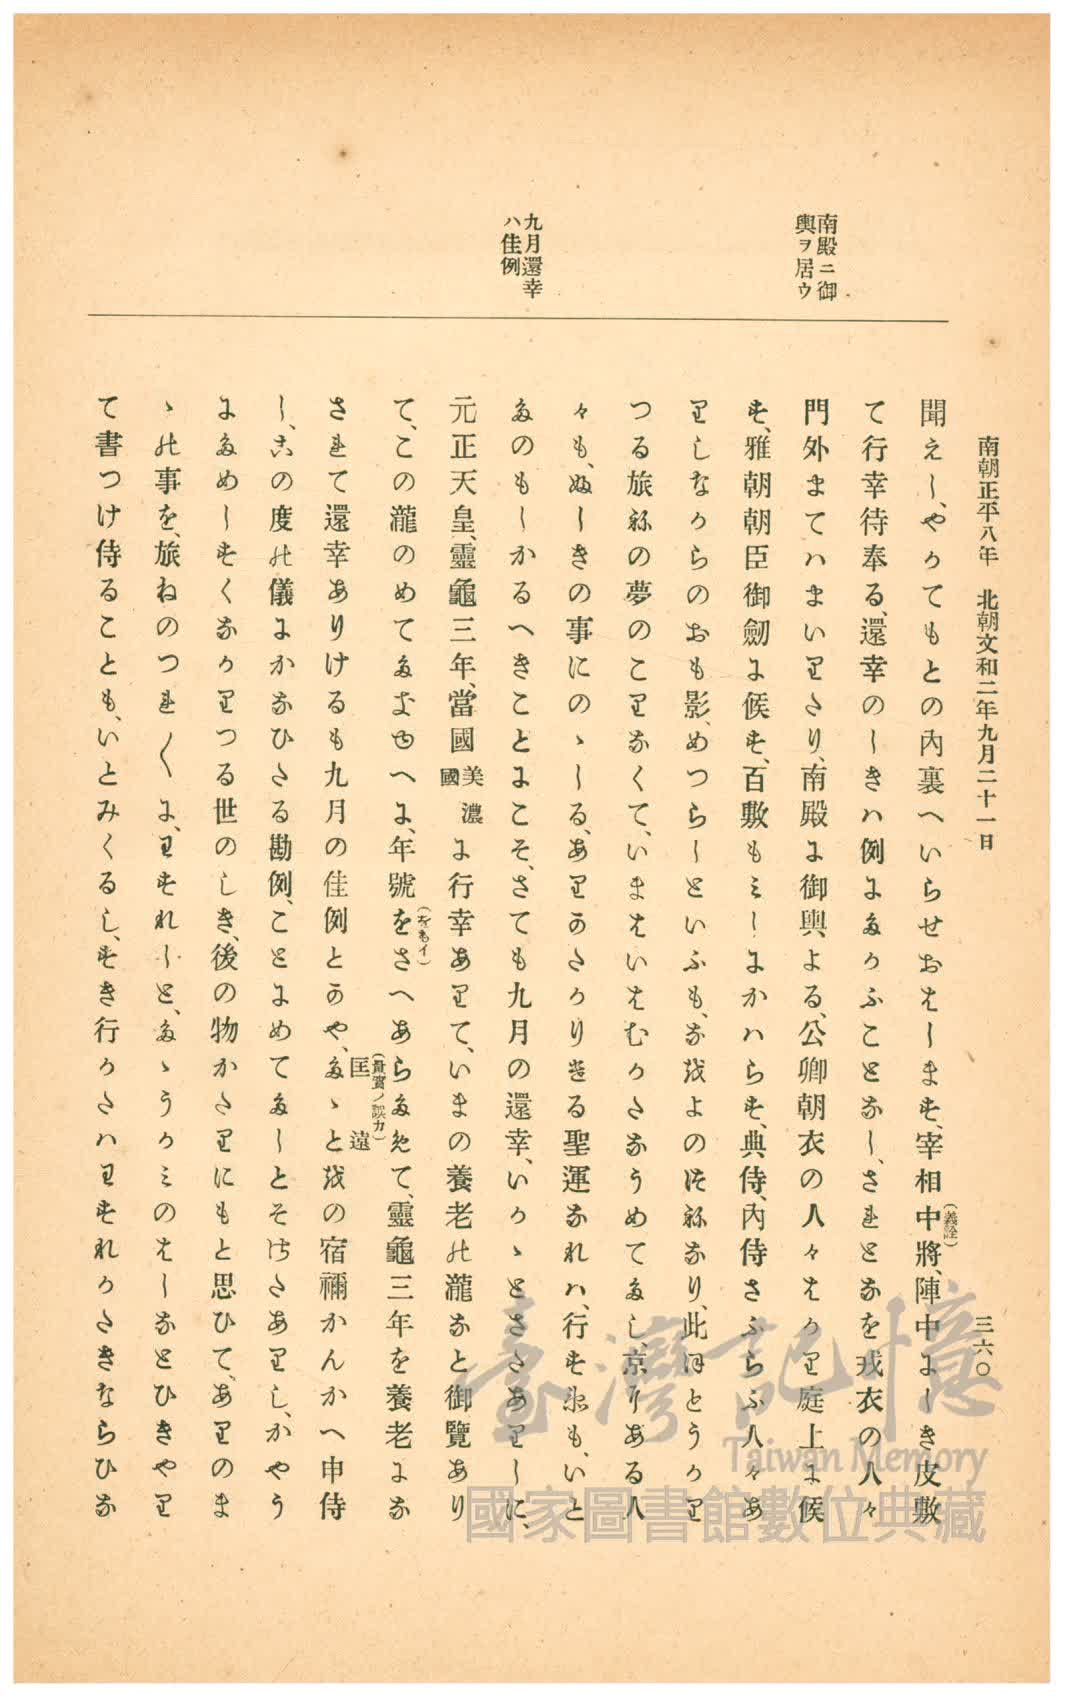 南朝正平八年 北朝文和二年九月二十一日
三六〇
南殿ニ御
輿ヲ居ウ
九月還幸
ハ佳例
聞えし、やかてもとの内裏へいらせおはします、宰相中將、(義詮)陣中にしき皮敷
て行幸待奉る、還幸のしきハ例にたかふことなし、されとなを戎衣の人々
門外まてハまいりたり、南殿に御輿よる、公卿朝衣の人々はかり庭上に候
す、雅朝朝臣御劒に候す、百敷もミしにかハらす、典侍、内侍さふらふ人々あ
りしなからのおも影、めつらしといふも、な越よのつねなり、此ほとうかり
つる旅ねの夢のこりなくて、いまはいはむかたなうめてたし、京りある人
々も、ぬしきの事にのゝしる、ありかたかりける聖運なれハ、行すゑも、いと
たのもしかるへきことにこそ、さても九月の還幸、いかゝとさたありしに、
元正天皇、靈龜三年、當國美濃國に行幸ありて、いまの養老の瀧なと御覽あり
て、この瀧のめてたきゆへに、年號を(をもイ)さへあらためて、靈龜三年を養老にな
されて還幸ありけるも九月の佳例とかや、たゝと越の宿禰(匡遠)(量實ノ誤カ)かんかへ申侍
し、この度の儀にかなひたる勘例、ことにめてたしとそけたありし、かやう
にためしすくなかりつる世のしき、後の物かたりにもと思ひて、ありのま
ゝの事を、旅ねのつれ〱に、わすれしと、たゝうかミのはしなとひきやり
て書つけ侍ることも、いとみくるし、すき行かたハわすれかたきならひな
臺灣記憶
Taiwan Memory
國家圖書館數位典藏